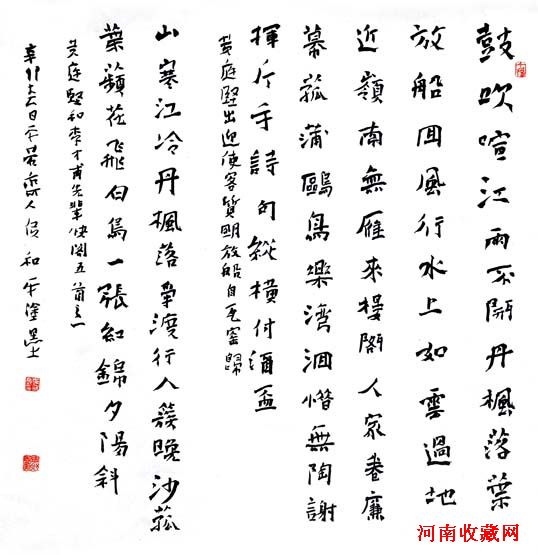 鼓吹喧江雨不開丹楓落葉
放船回風行水上如雲過地
近嶺南無雁來樓閣人家卷廉
幕菰蒲鷗鳥樂灣洄惜無陶謝
揮斤手詩句縱橫付酒盃
黃庭堅出迎使客質明放船自瓦窰歸
山寒江冷丹楓落爭渡行人簇晚沙菰
葉蘋花飛白鳥一張紅錦夕陽斜
黃庭堅和李才甫先輩快閣五首之一
日平 齋人 和平塗墨
河南收藏网